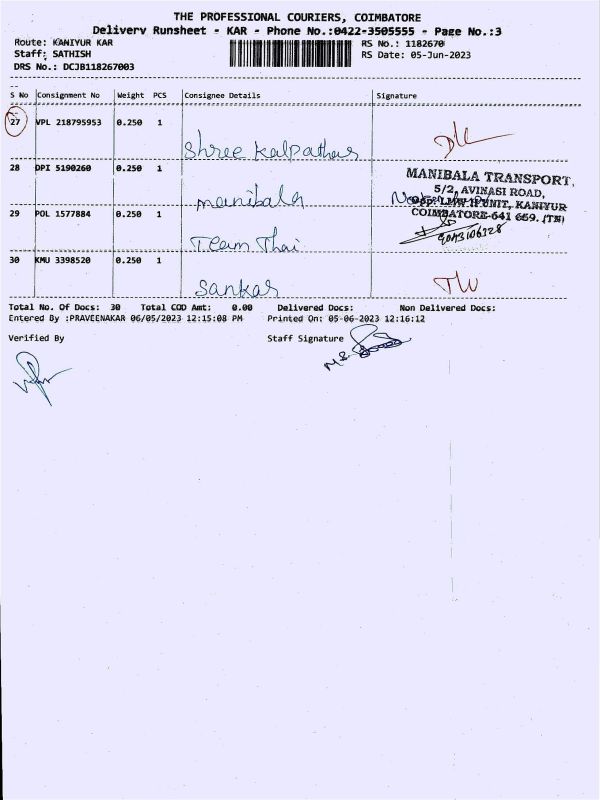 THE PROFESSIONAL COURIERS, COIMBATORE
Delivery Runsheet - KAR - Phone No.:0422-3505555 - Page No.:3
Route: KANIYUR KAR
RS No.: 1182670
Staff: SATHISH
RS Date: 05-Jun-2023
DRS No.: DCJB118267003
S No Consignment No Weight PCS Consignee Details Signature
27 VPL 218795953 0.250 1
Shree Kalpathas
28 DPI 5190260 0.250 1
manibala
MANIBALA TRANSPORT,
5/2, AVINASI ROAD,
Opp. LMW II UNIT, KANIYUR
COIMBATORE-641 659. (TN)
29 POL 1577884 0.250 1
Team Thai
30 KMU 3398520 0.250 1
Sankar
Total No. Of Docs: 30 Total COD Amt: 0.00 Delivered Docs: Non Delivered Docs:
Entered By :PRAVEENAKAR 06/05/2023 12:15:08 PM Printed On: 05-06-2023 12:16:12
Verified By Staff Signature